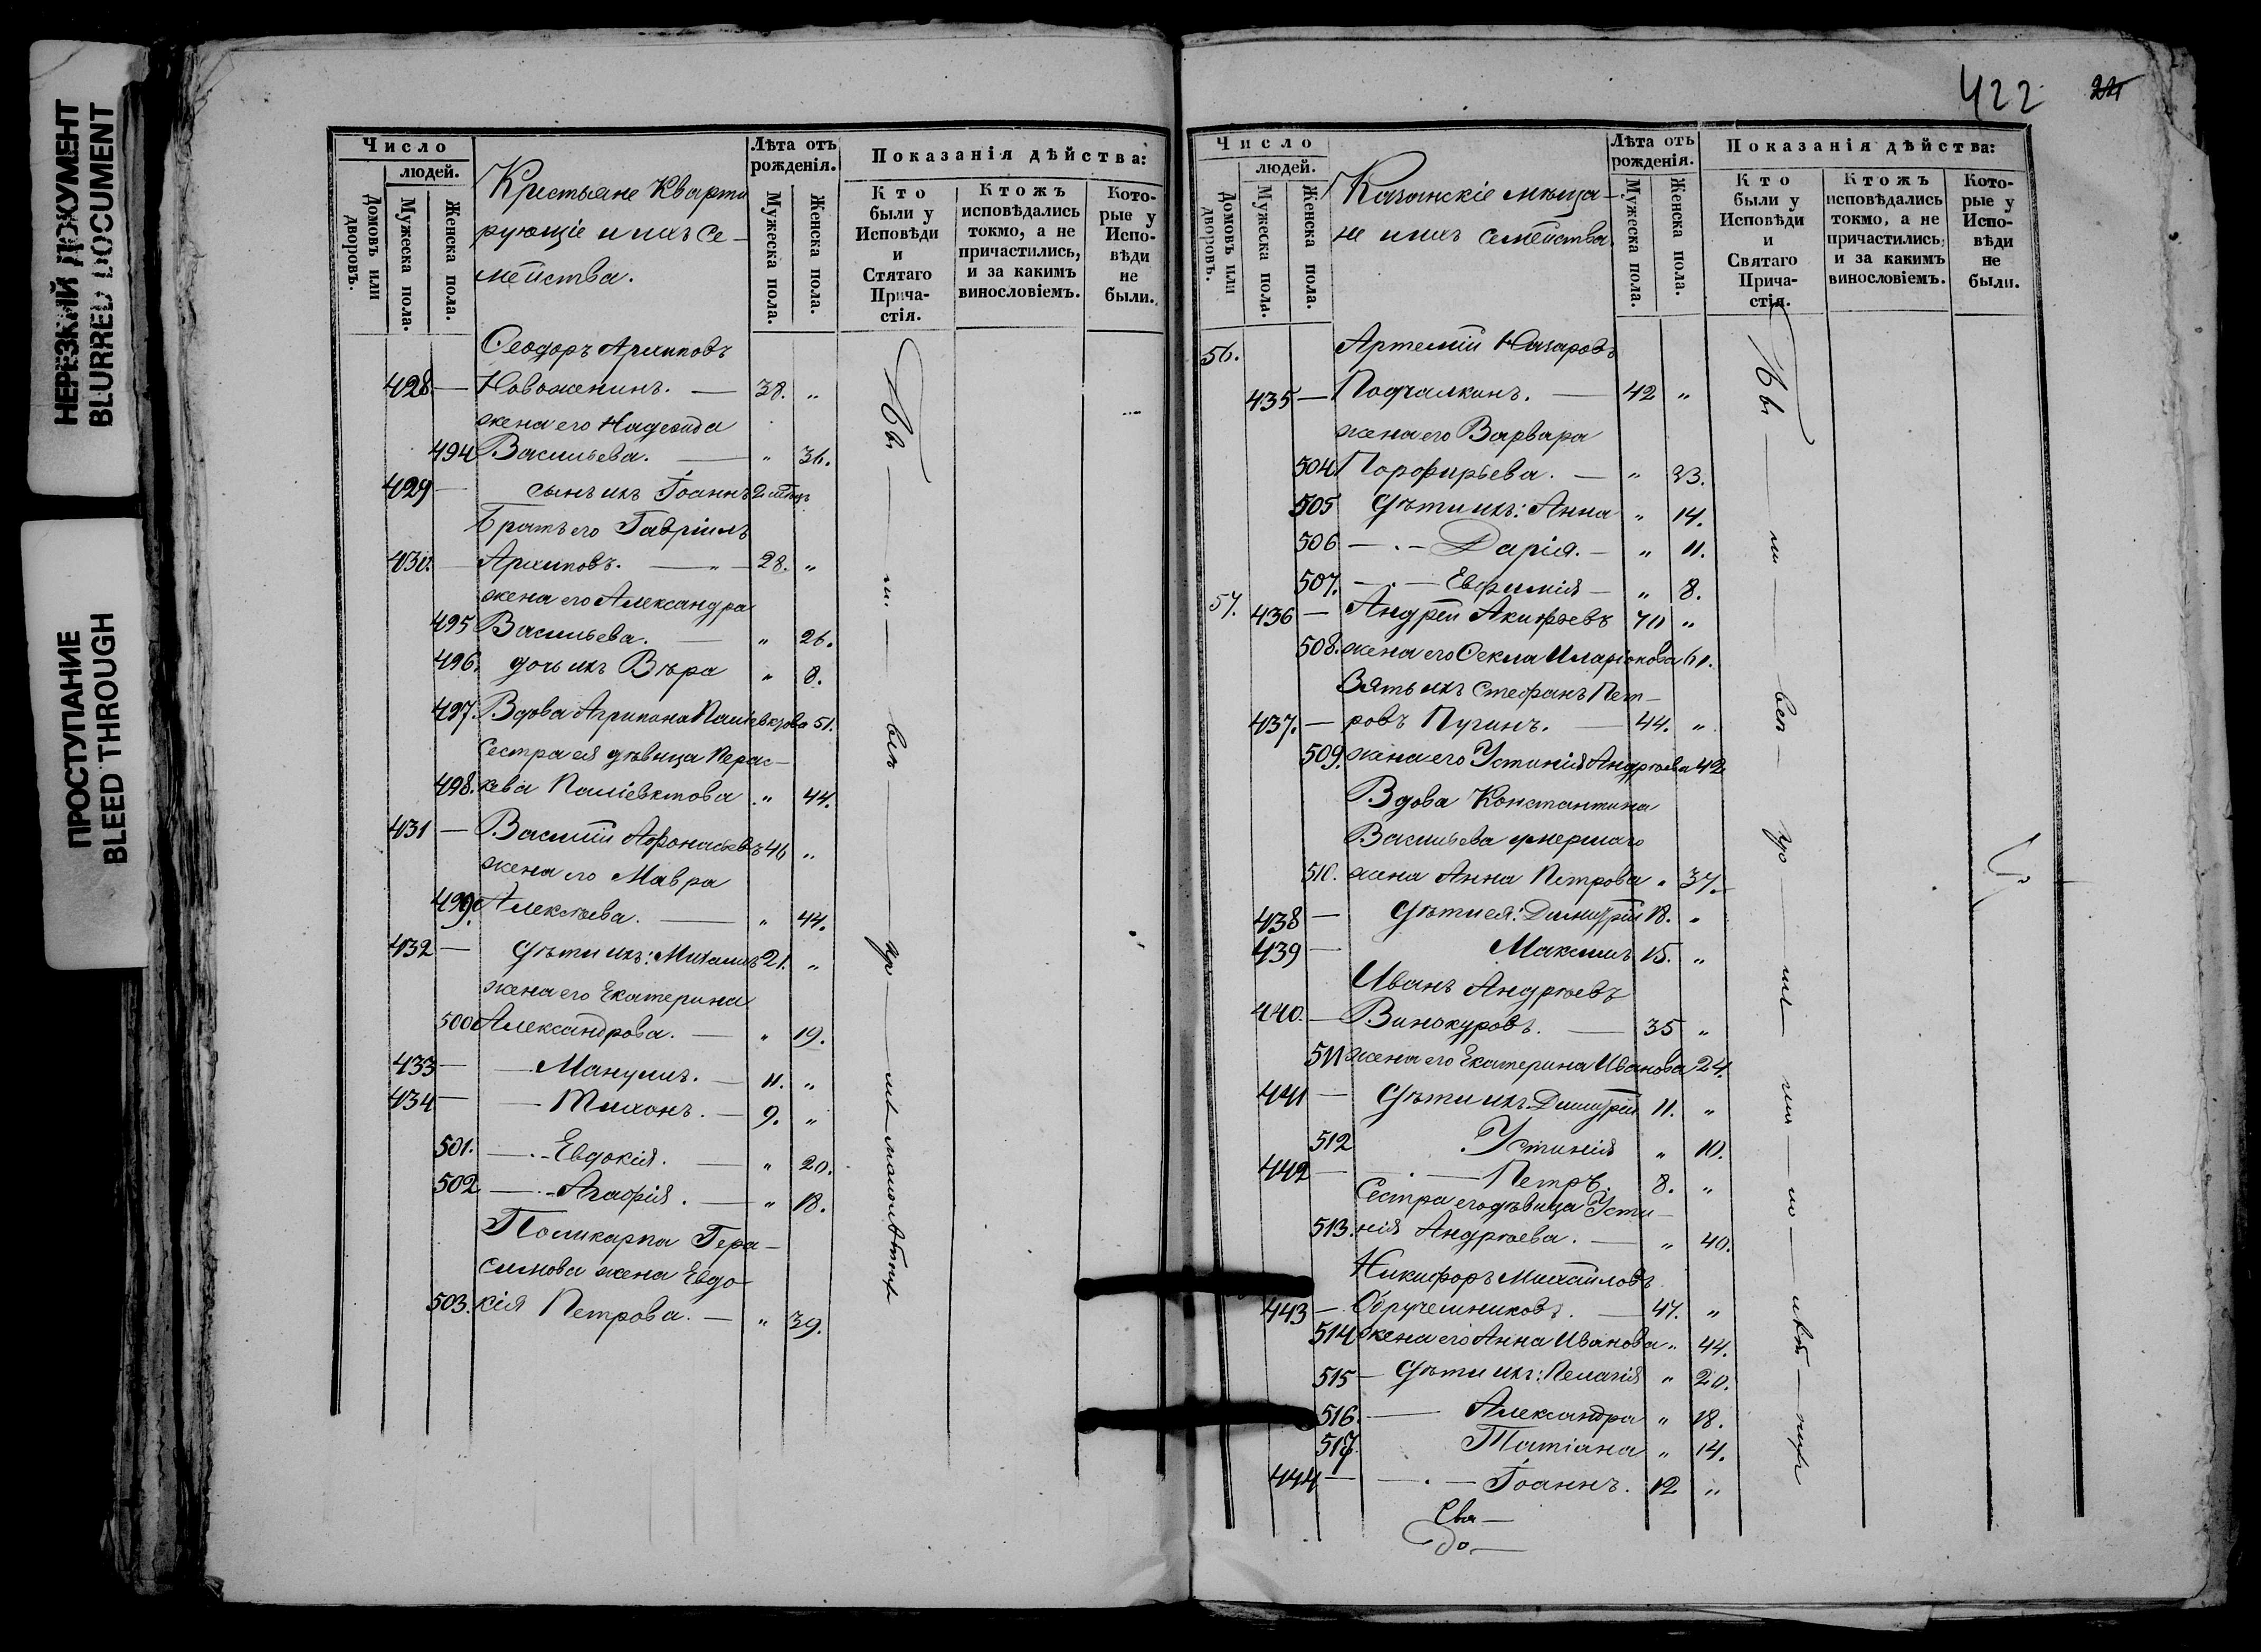 НЕРЕЗКИЙ ДОКУМЕНТ
BLURRED DOCUMENT
ПРОСТУПАНИЕ
BLEED THROUGH
Число
людей.
Домовъ или дворовъ.
Мужеска пола.
Женска пола.
Крестьяне Кварти
рующіе и ихъ се-
мейства.
Лѣта отъ рожденія.
Мужеска пола.
Женска пола.
Показанія дѣйства:
Кто были у Исповѣди и Стятаго Прича-стія.
Ктожъ исповѣдались токмо, а не причастились, и за какимъ винословіемъ.
Кото-рые у Испо-вѣди не были.
Ѳеодоръ Архиповъ
428 — Новоженинъ. — 38. "
жена его Надежда
494 Васильева. — " 36.
429 — сынъ ихъ Іоаннъ 2
Братъ его Гавріилъ
430. Архиповъ. — " — 28. "
жена его Александра
495 Васильева. — " 26.
496. дочь ихъ Вѣра " 8.
497. Вдова Агрипена Паліевктова 51.
Сестра ея дѣвица Парас-
498. кева Паліевктова " 44.
431 — Василій Афонасьевъ 46 "
жена его Мавра
499. Алексѣева. — " 44.
432 — Дѣти ихъ: Михаилъ 21. "
жена его Екатерина
500 Александрова. — " 19.
433 — — Мануилъ. — 11. "
434 — — Тихонъ. — 9. "
501. —.— Евдокія. — " 20.
502 —.— Агафія. — " 18.
Поликарпа Гера-
симова жена Евдо-
503. кія Петрова. — " 39.
422
24
Число
людей.
Домовъ или дворовъ.
Мужеска пола.
Женска пола.
Казанскіе мѣща-
не и ихъ семейства
Лѣта отъ рожденія.
Мужеска пола.
Женска пола.
Показанія дѣйства:
Кто были у Исповѣди и Святаго Прича-стія.
Ктожъ исповѣдались токмо, а не причастились, и за какимъ винословіемъ.
Кото-рые у Испо-вѣди не были.
56. Артемій Назаровъ
435 — Подчалкинъ. — 42 "
жена его Варвара
504 Порфирьева. — " 33.
505 Дѣти ихъ: Анна " 14.
506 —.— Дарія. — " 11.
507. —.— Евфимія — " 8.
57. 436 — Андрей Акинфьевъ 70 "
508. жена его Ѳекла Иларіонова 61.
Зять ихъ Стефанъ Пет-
437. — ровъ Пугинъ. — 44. "
509. жена его Устинія Андреева 42
Вдова Константина
Васильева умершаго
510. жена Анна Петрова " 37.
438 — Дѣти ея: Димитрій 18. "
439 — Максимъ 15. "
Иванъ Андреевъ
440. — Винокуровъ. — 35 "
511 жена его Екатерина Иванова 24.
441 — Дѣти ихъ Димитрій 11. "
512 Устинія " 10.
442 — .— Петръ. 8. "
Сестра его дѣвица Усти-
513. нія Андреева. — " 40.
Никифоръ Михайловъ
443 — Обручниковъ. — 47. "
514 жена его Анна Иванова " 44.
515 — Дѣти ихъ: Пелагія " 20.
516. — Александра " 18.
517. Татіана " 14.
444 — —.— Іоаннъ. 12 "